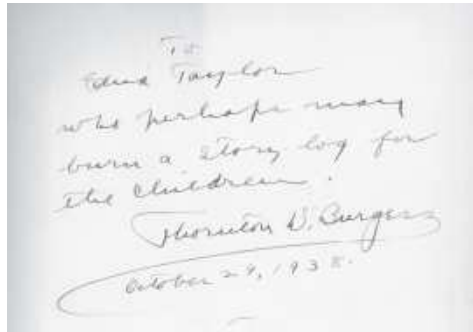 To
Edna Taylor
who perhaps may
burn a story log for
the children.
Thornton W. Burgess
October 29, 1938.